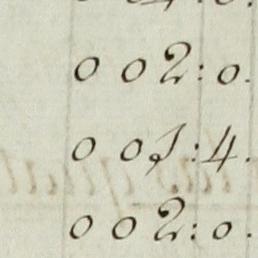 0 02:0.
0 01:4.
0 02:0.